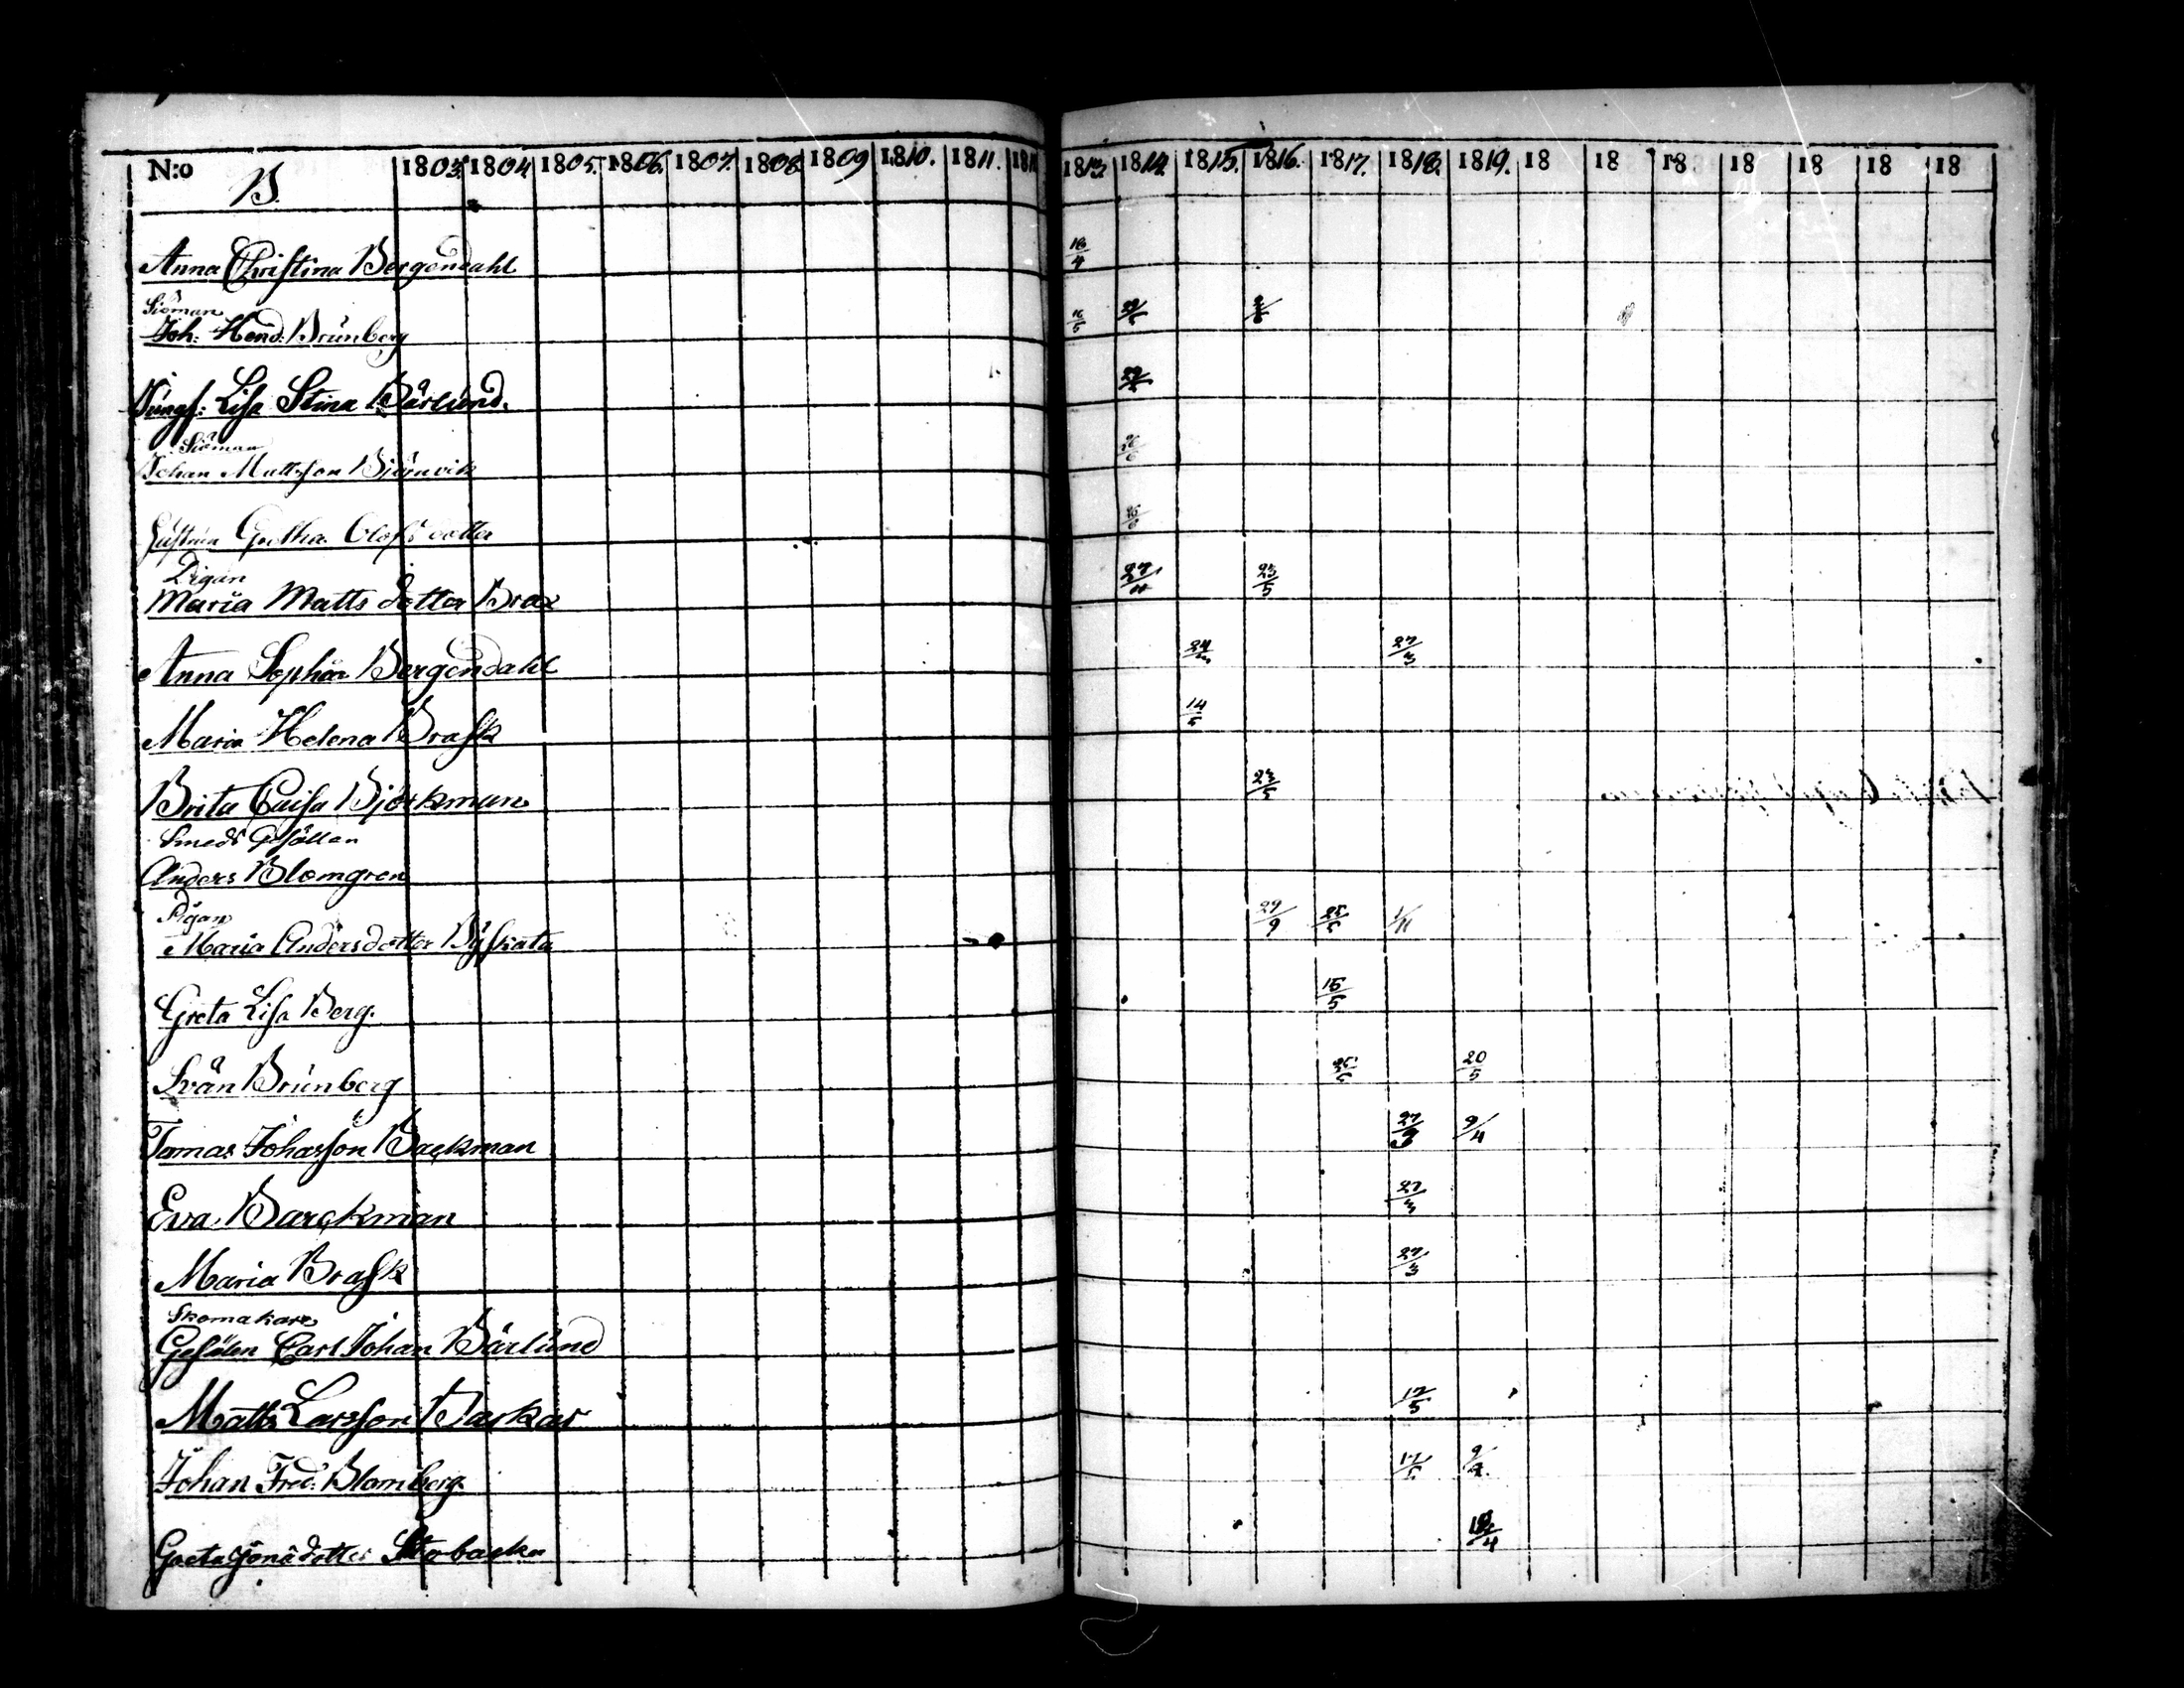 N:o B. 1803. 1804 1805. 1806. 1807. 1808 1809 1810. 1811. 181 1813. 1814. 1815. 1816. 1817. 1818. 1819. 18 18 18 18 18 18 18
Anna Christina Bergendahl 16/4
Siöman
Joh: Hend: Brünberg 16/5
Jungf: Lisa Stina Bärlund.
Siöman
Johan Mattsson Björnvik
Gretha Olofs dotter
Pigan
Maria Matts dotter Brax 27/11 23/5
Anna Sophia Bergendahl 24/3 27/3
Maria Helena Brask 14/5
Brita Caisa Björkman 23/5
Smeds Gesällen
Anders Blomgren
Pigan
Maria Andersdotter Byskata 29/9 25/5 1/11
Greta Lisa Berg. 15/5
Svän Brünberg 20/5
Tomas Johasson Backman 27/3 9/4
Eva Barckman 27/3
Maria Brask 27/3
Skomakare
Gesälen Carl Johan Bärlund
Matts Larsson Backar 17/5
Johan Fred: Blomberg 17/5 9/4
Greta Jonsdotter Storbacka